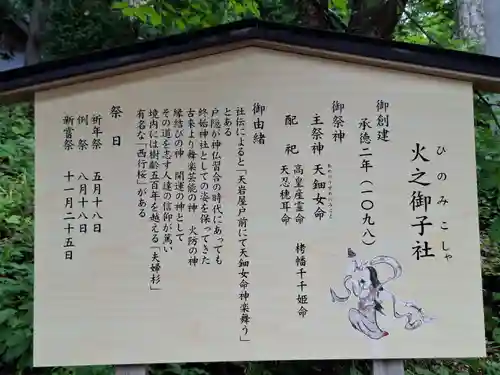 火之御子社
ひのみこしゃ
御創建
承徳二年（一〇九八）
御祭神
主祭神 天鈿女命
あめのうずめのみこと
配祀 高皇産霊命 栲幡千千姫命
天忍穂耳命
御由緒
社伝によると「天岩屋戸前にて天鈿女命神楽舞う」
とある
戸隠が神仏習合の時代にあっても
終始神社としての姿を保ってきた
古来より舞楽芸能の神 火防の神
縁結びの神 開運の神として
その道を志す人達の信仰が篤い
境内には樹齢五百年を越える「夫婦杉」
有名な「西行桜」がある
祭日
祈年祭 五月十八日
例祭 八月十八日
新嘗祭 十一月二十五日